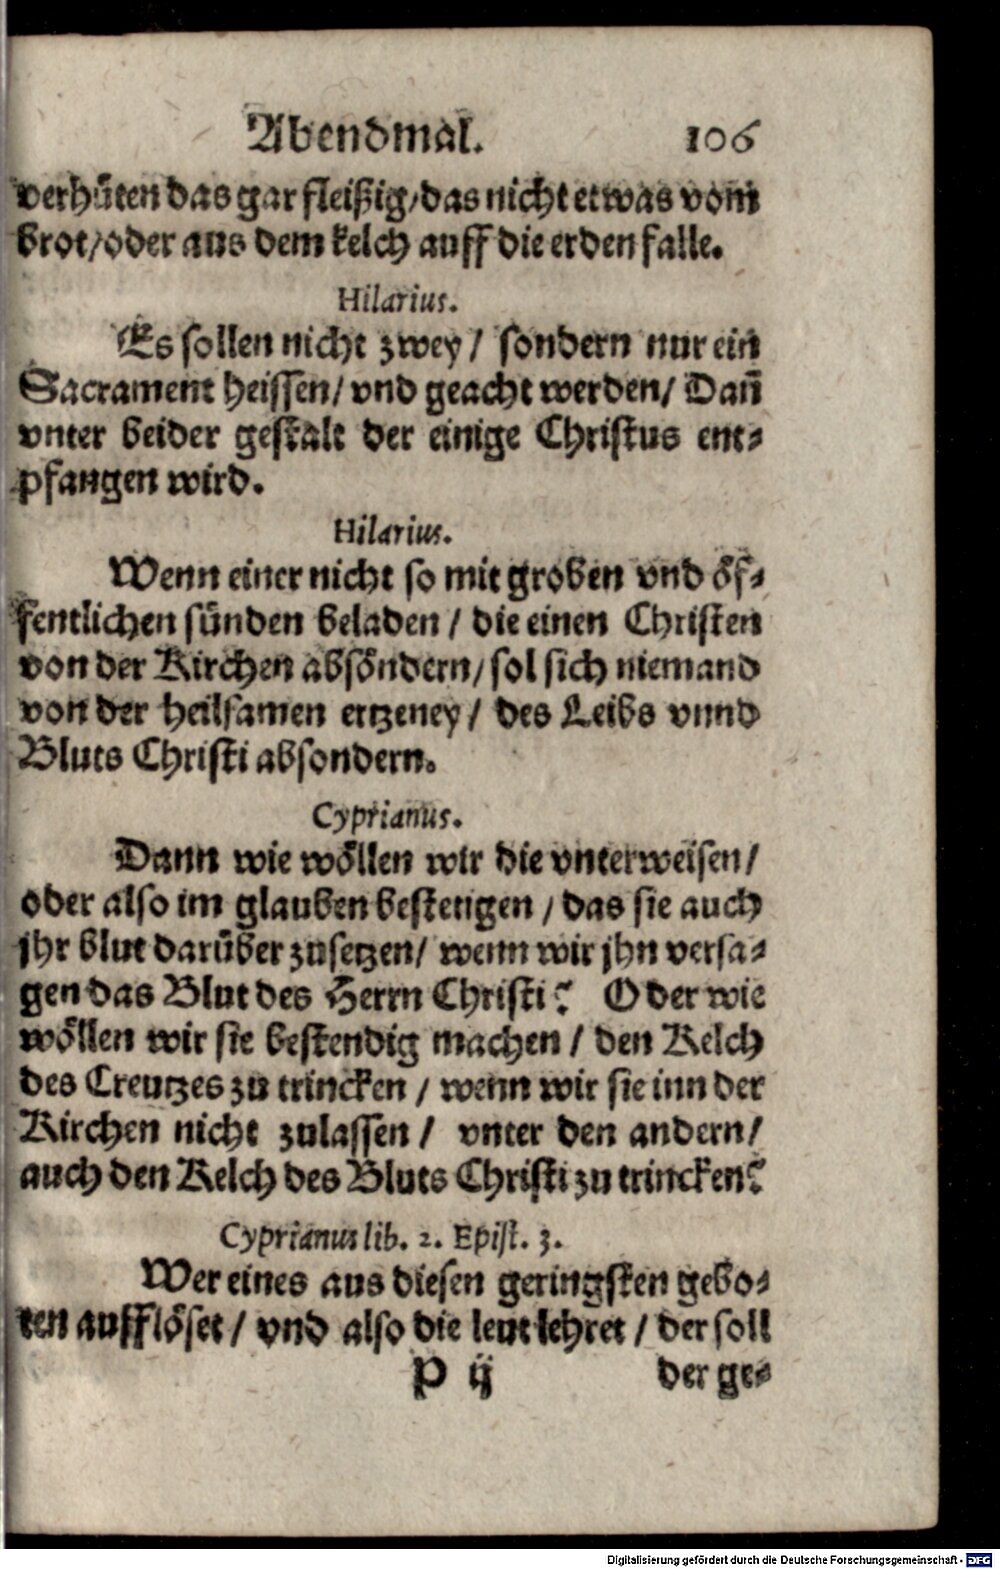 Abendmal. 106
verhüten das gar fleißig/das nicht etwas vom
brot/oder aus dem kelch auff die erden falle.
Hilarius.
Es sollen nicht zwey / sondern nur ein
Sacrament heissen/ vnd geacht werden/ Dañ
vnter beider gestalt der einige Christus ent-
pfangen wird.
Hilarius.
Wenn einer nicht so mit groben vnd öf-
fentlichen sünden beladen / die einen Christen
von der Kirchen absöndern/ sol sich niemand
von der heilsamen ertzeney / des Leibs vnnd
Bluts Christi absondern.
Cyprianus.
Dann wie wöllen wir die vnterweisen/
oder also im glauben bestetigen / das sie auch
jhr blut darüber zusetzen/ wenn wir jhn versa-
gen das Blut des Herrn Christi? Oder wie
wöllen wir sie bestendig machen / den Kelch
des Creutzes zu trincken / wenn wir sie inn der
Kirchen nicht zulassen / vnter den andern/
auch den Kelch des Bluts Christi zu trincken?
Cyprianus lib. 2. Epist. 3.
Wer eines aus diesen geringsten gebo-
ten aufflöset / vnd also die leut lehret / der soll
P ij der ge-
Digitalisierung gefördert durch die Deutsche Forschungsgemeinschaft - DFG